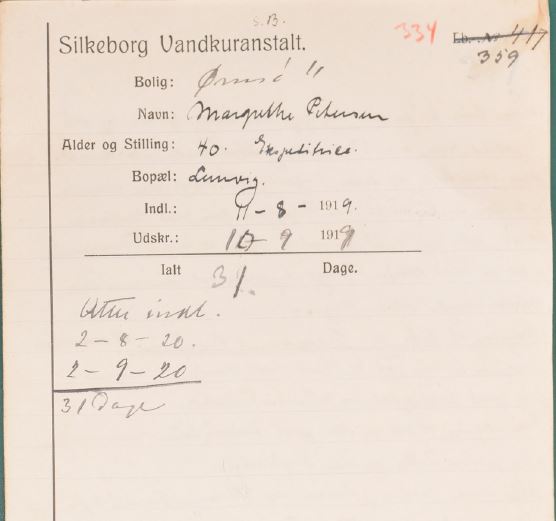 S.B.
334
Lb. Nr 417
Silkeborg Vandkuranstalt.
359
Bolig: Ørnsö 11
Navn: Margrethe Petersen
Alder og Stilling: 40. Ekspeditrice.
Bopæl: Lemvig.
Indl.: 11-8-1919.
Udskr.: 10 9 1919
Ialt 31. Dage.
Atter indl.
2-8-20.
2-9-20
31 Dage